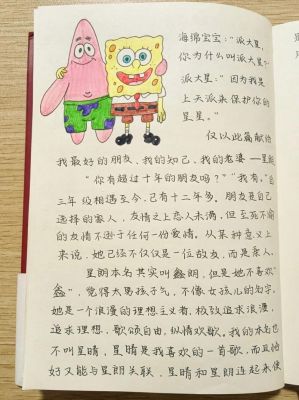 海绵宝宝：“派大星，
你为什么叫派大星？”
派大星：“因为我是
上天派来保护你的
星星。”
仅以此篇献给
我最好的朋友、我的知己、我的老婆—星朗
“你有超过十年的朋友吗？”“我有。”自
三年级相遇至今，已有十二年多。朋友是自己
选择的家人，友情之上恋人未满，但至死不渝
的友情不逊于任何一份爱情。从某种意义上
来说，她已经不仅仅是一位故友，而是亲人。
星朗本名其实叫鑫朗，但是她不喜欢
“鑫”，觉得太男孩子气，不像女孩儿的名字。
她是一个浪漫的理想主义者，极致追求浪漫，
追求理想，歌颂自由，纵情欢歌。我的本名也
不叫星晴，星晴是我喜欢的一首歌，而且恰
好又能与星朗关联，星晴和星朗连起来便